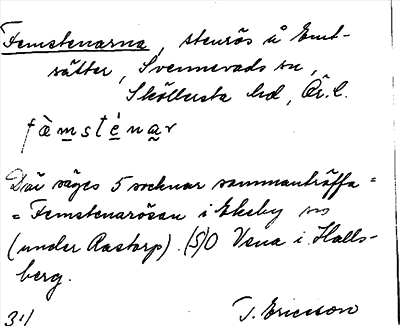 Femstenarna, stenrös å Emt-
sätter, Svennevads sn,
Sköllersta hd, Ör. l.
fàmsténar
Där säges 5 socknar sammanträffa =
= Femstenarösen i Ekeby sn
(under Aastorp). (S)O Vena i Halls-
berg.
31/ J. Ericsson